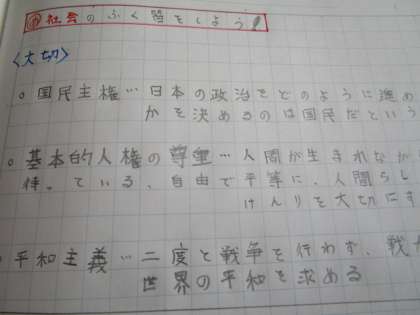 ㋱社会のふく習をしよう!
〈大切〉
○国民主権…日本の政治をどのように進め
かを決めるのは国民だという
○基本的人権の尊重…人間が生まれなが
待っている、自由で平等に、人間らし
けんりを大切にす
○平和主義…二度と戦争を行わず、戦
世界の平和を求める